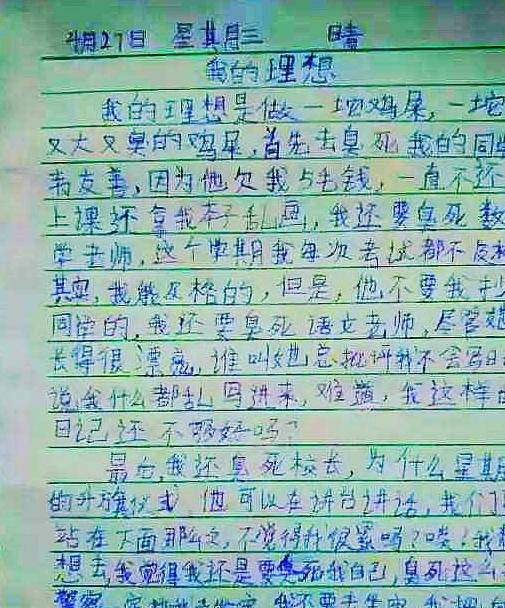 4月27日 星其月三 晴
我的理想
我的理想是做一坨鸡屎,一坨
又大又臭的鸡屎,首先去臭死我的同学
韦友善,因为他欠我5毛钱,一直不还
上课还拿我本子乱画,我还要臭死数
学老师,这个学期我每次考试都不及格
其实,我能及格的,但是,他不要我抄
同学的,我还要臭死语文老师,尽管她
长得很漂亮,谁叫她总批评我不会写日
说我什么都乱写进来,难道,我这样的
日记还不够好吗?
最后,我还臭死校长,为什么星期
的升旗仪式,他可以在讲台讲话,我们
站在下面那么久,不觉得我很累吗?唉!我
想去,我觉得我还是要臭死我自己,臭死这么
警察